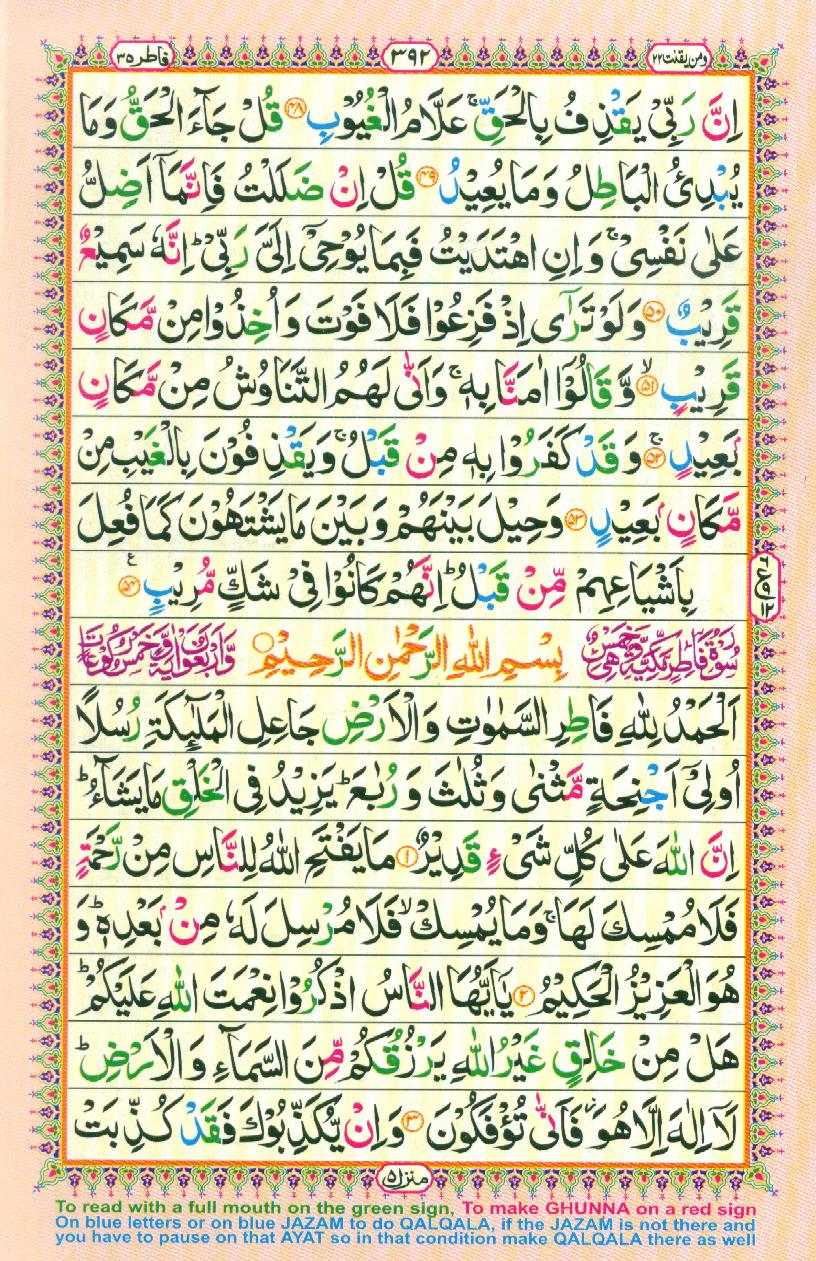 ومن یقنت ۲۲ ۳۹۲ فاطر ۳۵
اِنَّ رَبِّیْ یَقْذِفُ بِالْحَقِّ ۚ عَلَّامُ الْغُیُوْبِ ﴿۴۸﴾ قُلْ جَآءَ الْحَقُّ وَمَا
یُبْدِئُ الْبَاطِلُ وَمَا یُعِیْدُ ﴿۴۹﴾ قُلْ اِنْ ضَلَلْتُ فَاِنَّمَاۤ اَضِلُّ
عَلٰی نَفْسِیْ ۚ وَاِنِ اهْتَدَیْتُ فَبِمَا یُوْحِیْۤ اِلَیَّ رَبِّیْ ؕ اِنَّهٗ سَمِیْعٌ
قَرِیْبٌ ﴿۵۰﴾ وَلَوْ تَرٰۤی اِذْ فَزِعُوْا فَلَا فَوْتَ وَاُخِذُوْا مِنْ مَّكَانٍ
قَرِیْبٍ ﴿۵۱﴾ ۙ وَّقَالُوْۤا اٰمَنَّا بِهٖ ۚ وَاَنّٰی لَهُمُ التَّنَاوُشُ مِنْ مَّكَانٍۭ
بَعِیْدٍ ﴿۵۲﴾ ۚ وَقَدْ كَفَرُوْا بِهٖ مِنْ قَبْلُ ۚ وَیَقْذِفُوْنَ بِالْغَیْبِ مِنْ
مَّكَانٍۭ بَعِیْدٍ ﴿۵۳﴾ وَحِیْلَ بَیْنَهُمْ وَبَیْنَ مَا یَشْتَهُوْنَ كَمَا فُعِلَ
بِاَشْیَاعِهِمْ مِّنْ قَبْلُ ؕ اِنَّهُمْ كَانُوْا فِیْ شَكٍّ مُّرِیْبٍ ﴿۵۴﴾ ع
سُوْرَةُ فَاطِرٍ مَكِّیَّةٌ وَّهِیَ خَمْسٌ بِسْمِ اللّٰهِ الرَّحْمٰنِ الرَّحِیْمِ ○ وَّاَرْبَعُوْنَ اٰیَةً وَّخَمْسُ رُكُوْعَاتٍ
اَلْحَمْدُ لِلّٰهِ فَاطِرِ السَّمٰوٰتِ وَالْاَرْضِ جَاعِلِ الْمَلٰٓئِكَةِ رُسُلًا
اُولِیْۤ اَجْنِحَةٍ مَّثْنٰی وَثُلٰثَ وَرُبٰعَ ؕ یَزِیْدُ فِی الْخَلْقِ مَا یَشَآءُ ؕ
اِنَّ اللّٰهَ عَلٰی كُلِّ شَیْءٍ قَدِیْرٌ ﴿۱﴾ مَا یَفْتَحِ اللّٰهُ لِلنَّاسِ مِنْ رَّحْمَةٍ
فَلَا مُمْسِكَ لَهَا ۚ وَمَا یُمْسِكْ ۙ فَلَا مُرْسِلَ لَهٗ مِنْۢ بَعْدِهٖ ؕ وَ
هُوَ الْعَزِیْزُ الْحَكِیْمُ ﴿۲﴾ یٰۤاَیُّهَا النَّاسُ اذْكُرُوْا نِعْمَتَ اللّٰهِ عَلَیْكُمْ ؕ
هَلْ مِنْ خَالِقٍ غَیْرُ اللّٰهِ یَرْزُقُكُمْ مِّنَ السَّمَآءِ وَالْاَرْضِ ؕ
لَاۤ اِلٰهَ اِلَّا هُوَ ۖ فَاَنّٰی تُؤْفَكُوْنَ ﴿۳﴾ وَاِنْ یُّكَذِّبُوْكَ فَقَدْ كُذِّبَتْ
منزل ۵
To read with a full mouth on the green sign, To make GHUNNA on a red sign
On blue letters or on blue JAZAM to do QALQALA, if the JAZAM is not there and
you have to pause on that AYAT so in that condition make QALQALA there as well